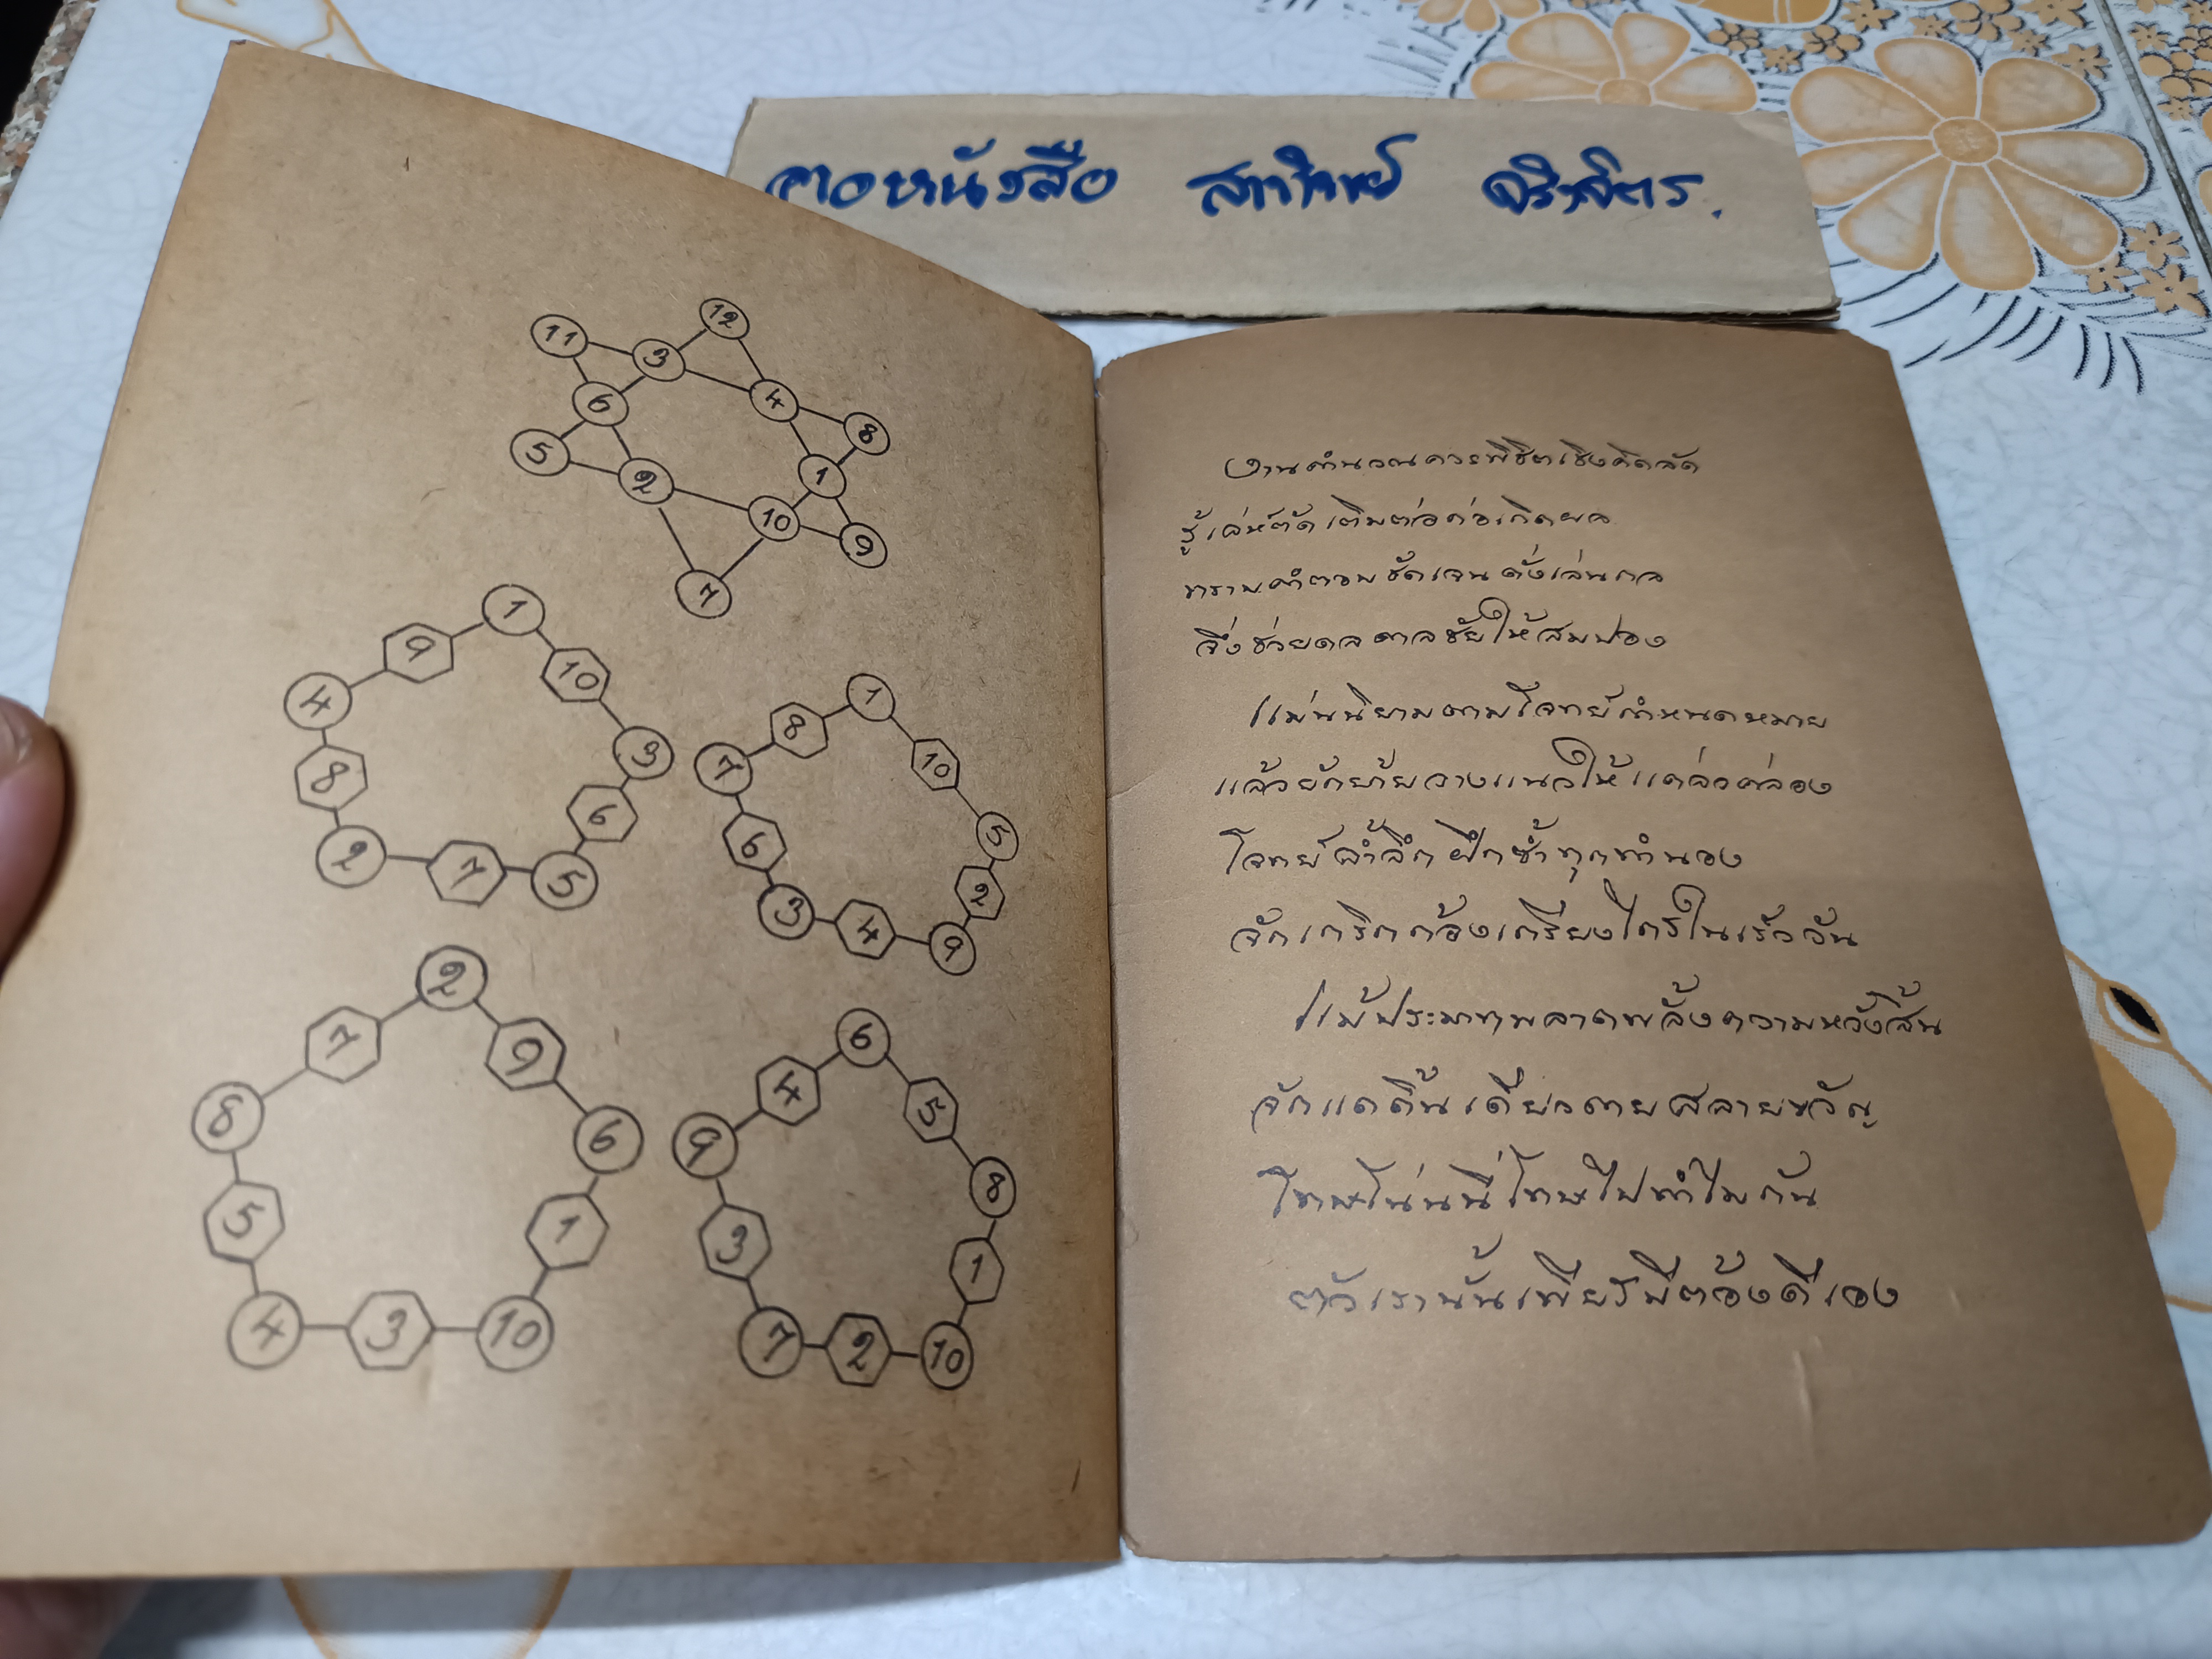 ขายหนังสือ
11 12
3
6 4
8
5 2 1
10
9
7
1
9 10
4
3
8
6
2 7 5
1
8
7 10
6 5
2
3 4 9
2
7 9
8
6
5 1
4 3 10
6
4 5
9
8
3 1
7 2 10
งานคำนวณควรพิชิตเชิงคิดลัด
รู้เล่ห์ตัดเติมต่อก่อเกิดผล
ทราบคำตอบชัดเจนดั่งเล่นกล
จึ่งช่วยดลดาลชัยให้สมปอง
แม่นนิยามตามโจทย์กำหนดหมาย
แล้วยักย้ายวางแนวให้แคล่วคล่อง
โจทย์ล้ำลึกฝึกซ้ำทุกทำนอง
จักเกริกก้องเกรียงไกรในเร็ววัน
แม้ประมาทพลาดพลั้งความหวังสิ้น
จักแดดิ้นเดียวดายสลายขวัญ
โทษโน่นนี่โทษไปทำไมกัน
ตัวเรานั้นเพียรมีต้องดีเอง